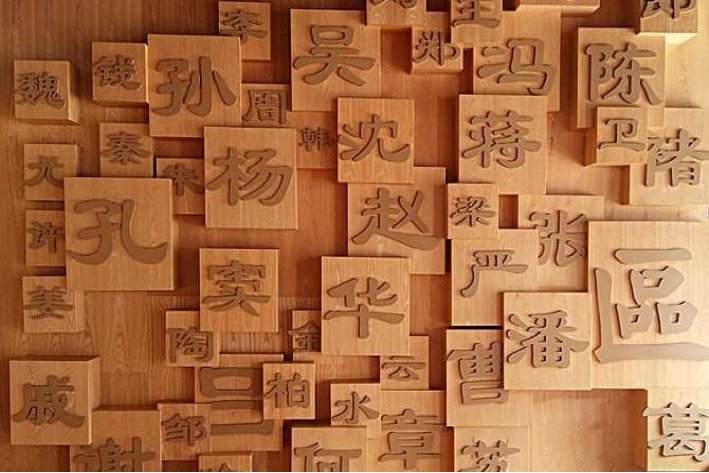 李
王
郑
吴
冯
陈
魏
钱
孙
周
韩
沈
蒋
卫
褚
尤
秦
朱
杨
许
孔
赵
梁
张
严
姜
窦
华
區
潘
陶
金
云
曹
戚
吕
柏
水
邹
章
葛
谢
何
苏